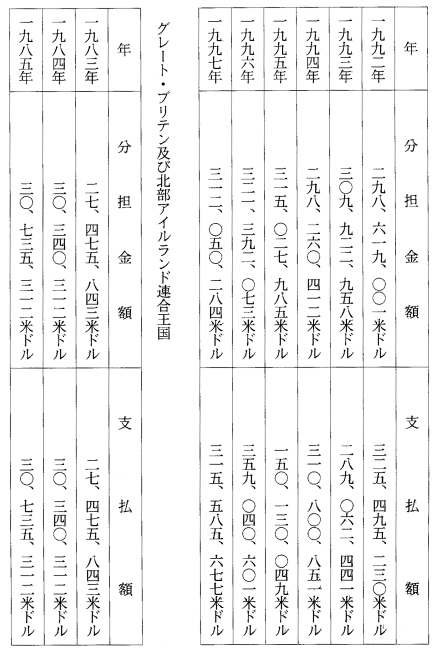 年 分担金額 支払額
一九九二年 二九八、六一九、〇〇一米ドル 三二五、四九五、二三〇米ドル
一九九三年 三〇九、九二二、九五八米ドル 二八九、〇六二、四四一米ドル
一九九四年 二九八、二六〇、四一二米ドル 三一〇、八〇〇、八五一米ドル
一九九五年 三一五、〇二七、九八五米ドル 一五〇、一三〇、〇四九米ドル
一九九六年 三二一、三九二、〇七三米ドル 三五九、〇四〇、六〇一米ドル
一九九七年 三一二、〇五〇、二八四米ドル 三一五、五八五、六七七米ドル
グレート・ブリテン及び北部アイルランド連合王国
年 分担金額 支払額
一九八三年 二七、四七五、八四三米ドル 二七、四七五、八四三米ドル
一九八四年 三〇、三四〇、三一二米ドル 三〇、三四〇、三一二米ドル
一九八五年 三〇、七三五、三一二米ドル 三〇、七三五、三一二米ドル